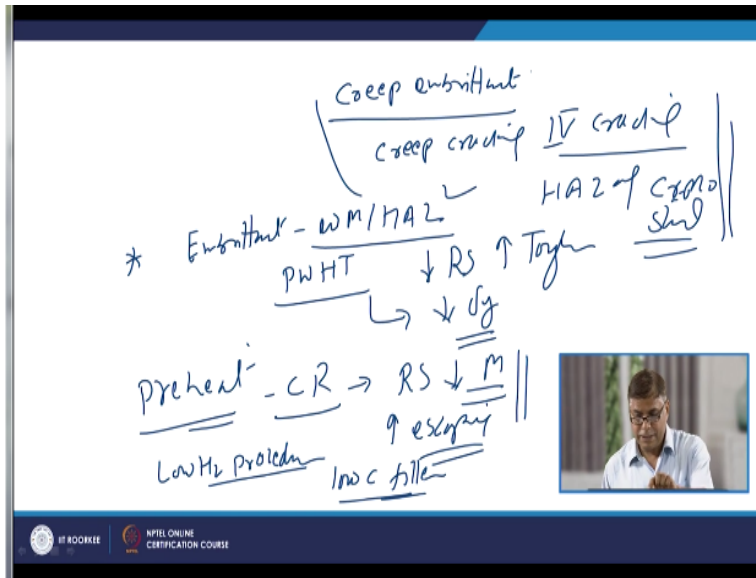 Creep embrittnt
Creep cracking IV cracking
HAZ of CrMo
steel
* Embrittnt - WM/HAZ
PWHT ↓ RS ↑ Tough
↳ ↓ σy
Preheat - CR → RS ↓ M
↑ escaping
Low H2 procedur
low C filler
IIT ROORKEE
NPTEL ONLINE
CERTIFICATION COURSE